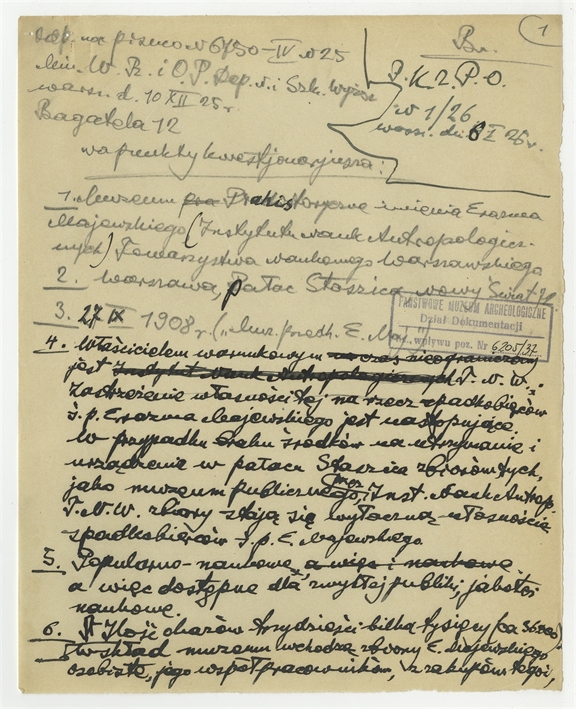 1
odp. na pismo N 6750-IV w 25
Min. W. R. i O. P. Dep. N. i Szk. Wyższ.
warsz. d. 10 XII 25 r.
Bagatela 12
Br.
P. K. Z. P. O.
N 1/26
warsz. dn. 8 I 26 r.
na punkty kwestjonarjusza:
1. Muzeum Prehistoryczne imienia Erazma
Majewskiego (Instytutu Nauk Antropologicz-
nych) Towarzystwa Naukowego Warszawskiego
2. Warszawa, Pałac Staszica, Nowy Świat
3. 27 IX 1908 r. („Muz. przedh. E. Maj.")
PAŃSTWOWE MUZEUM ARCHEOLOGICZNE
Dział Dokumentacji
wpływu poz. Nr 6205/37
4. Właścicielem warunkowym na czas nieograniczony
jest Instytut Nauk Antropologicznych T. N. W.
Zastrzeżenie własności tej na rzecz spadkobierców
ś. p. Erazma Majewskiego jest następujące
W przypadku braku środków na utrzymanie i
urządzenie w pałacu Staszica zbiorów tych,
jako muzeum publicznego, przez Inst. Nauk Antrop.
T. N. W. zbiory stają się wyłączną własnością
spadkobierców ś. p. E. Majewskiego
5. Popularno-naukowe, a więc i naukowe
a więc dostępne dla zwykłej publiki, jak też i
naukowe.
6. Ilość okazów trzydzieści kilka tysięcy (ca 36000)
W skład muzeum wchodzą zbiory E. Majewskiego
osobiste, jego współpracowników, z zakupów tegoż,